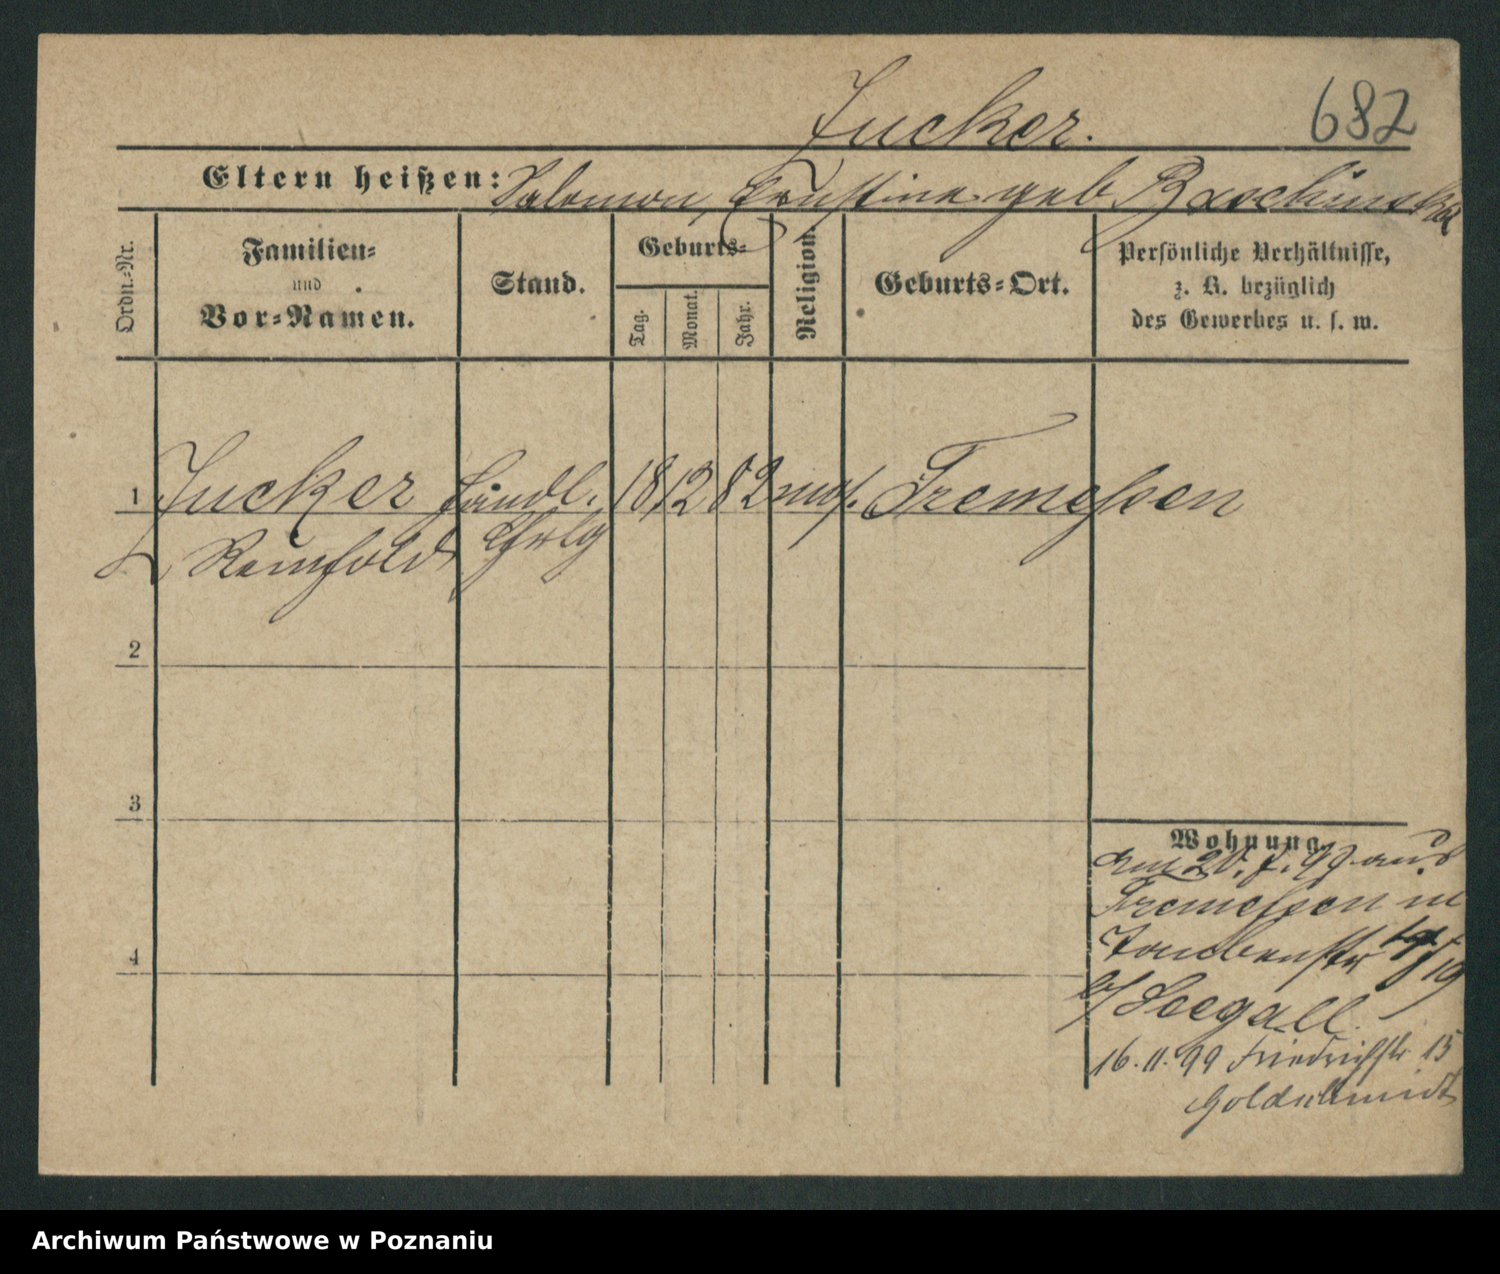 Zucker.
682
Eltern heißen: Salomon, Ernstine geb
Ordn.-Nr.
Familien-
und
Vor-Namen.
Stand.
Geburts-
Tag.
Monat.
Jahr.
Religion.
Geburts-Ort.
Persönliche Verhältnisse,
z. B. bezüglich
des Gewerbes u. s. w.
1 Zucker Handl. 18 12 82 mos. Tremessen
Reinhold
2
3
4
Wohnung.
am 20. 7. 99 aus
Tremessen in
Taubenstr
b/ Seegall.
16. 11. 99 Friedrichstr. 15
Goldschmidt
Archiwum Państwowe w Poznaniu